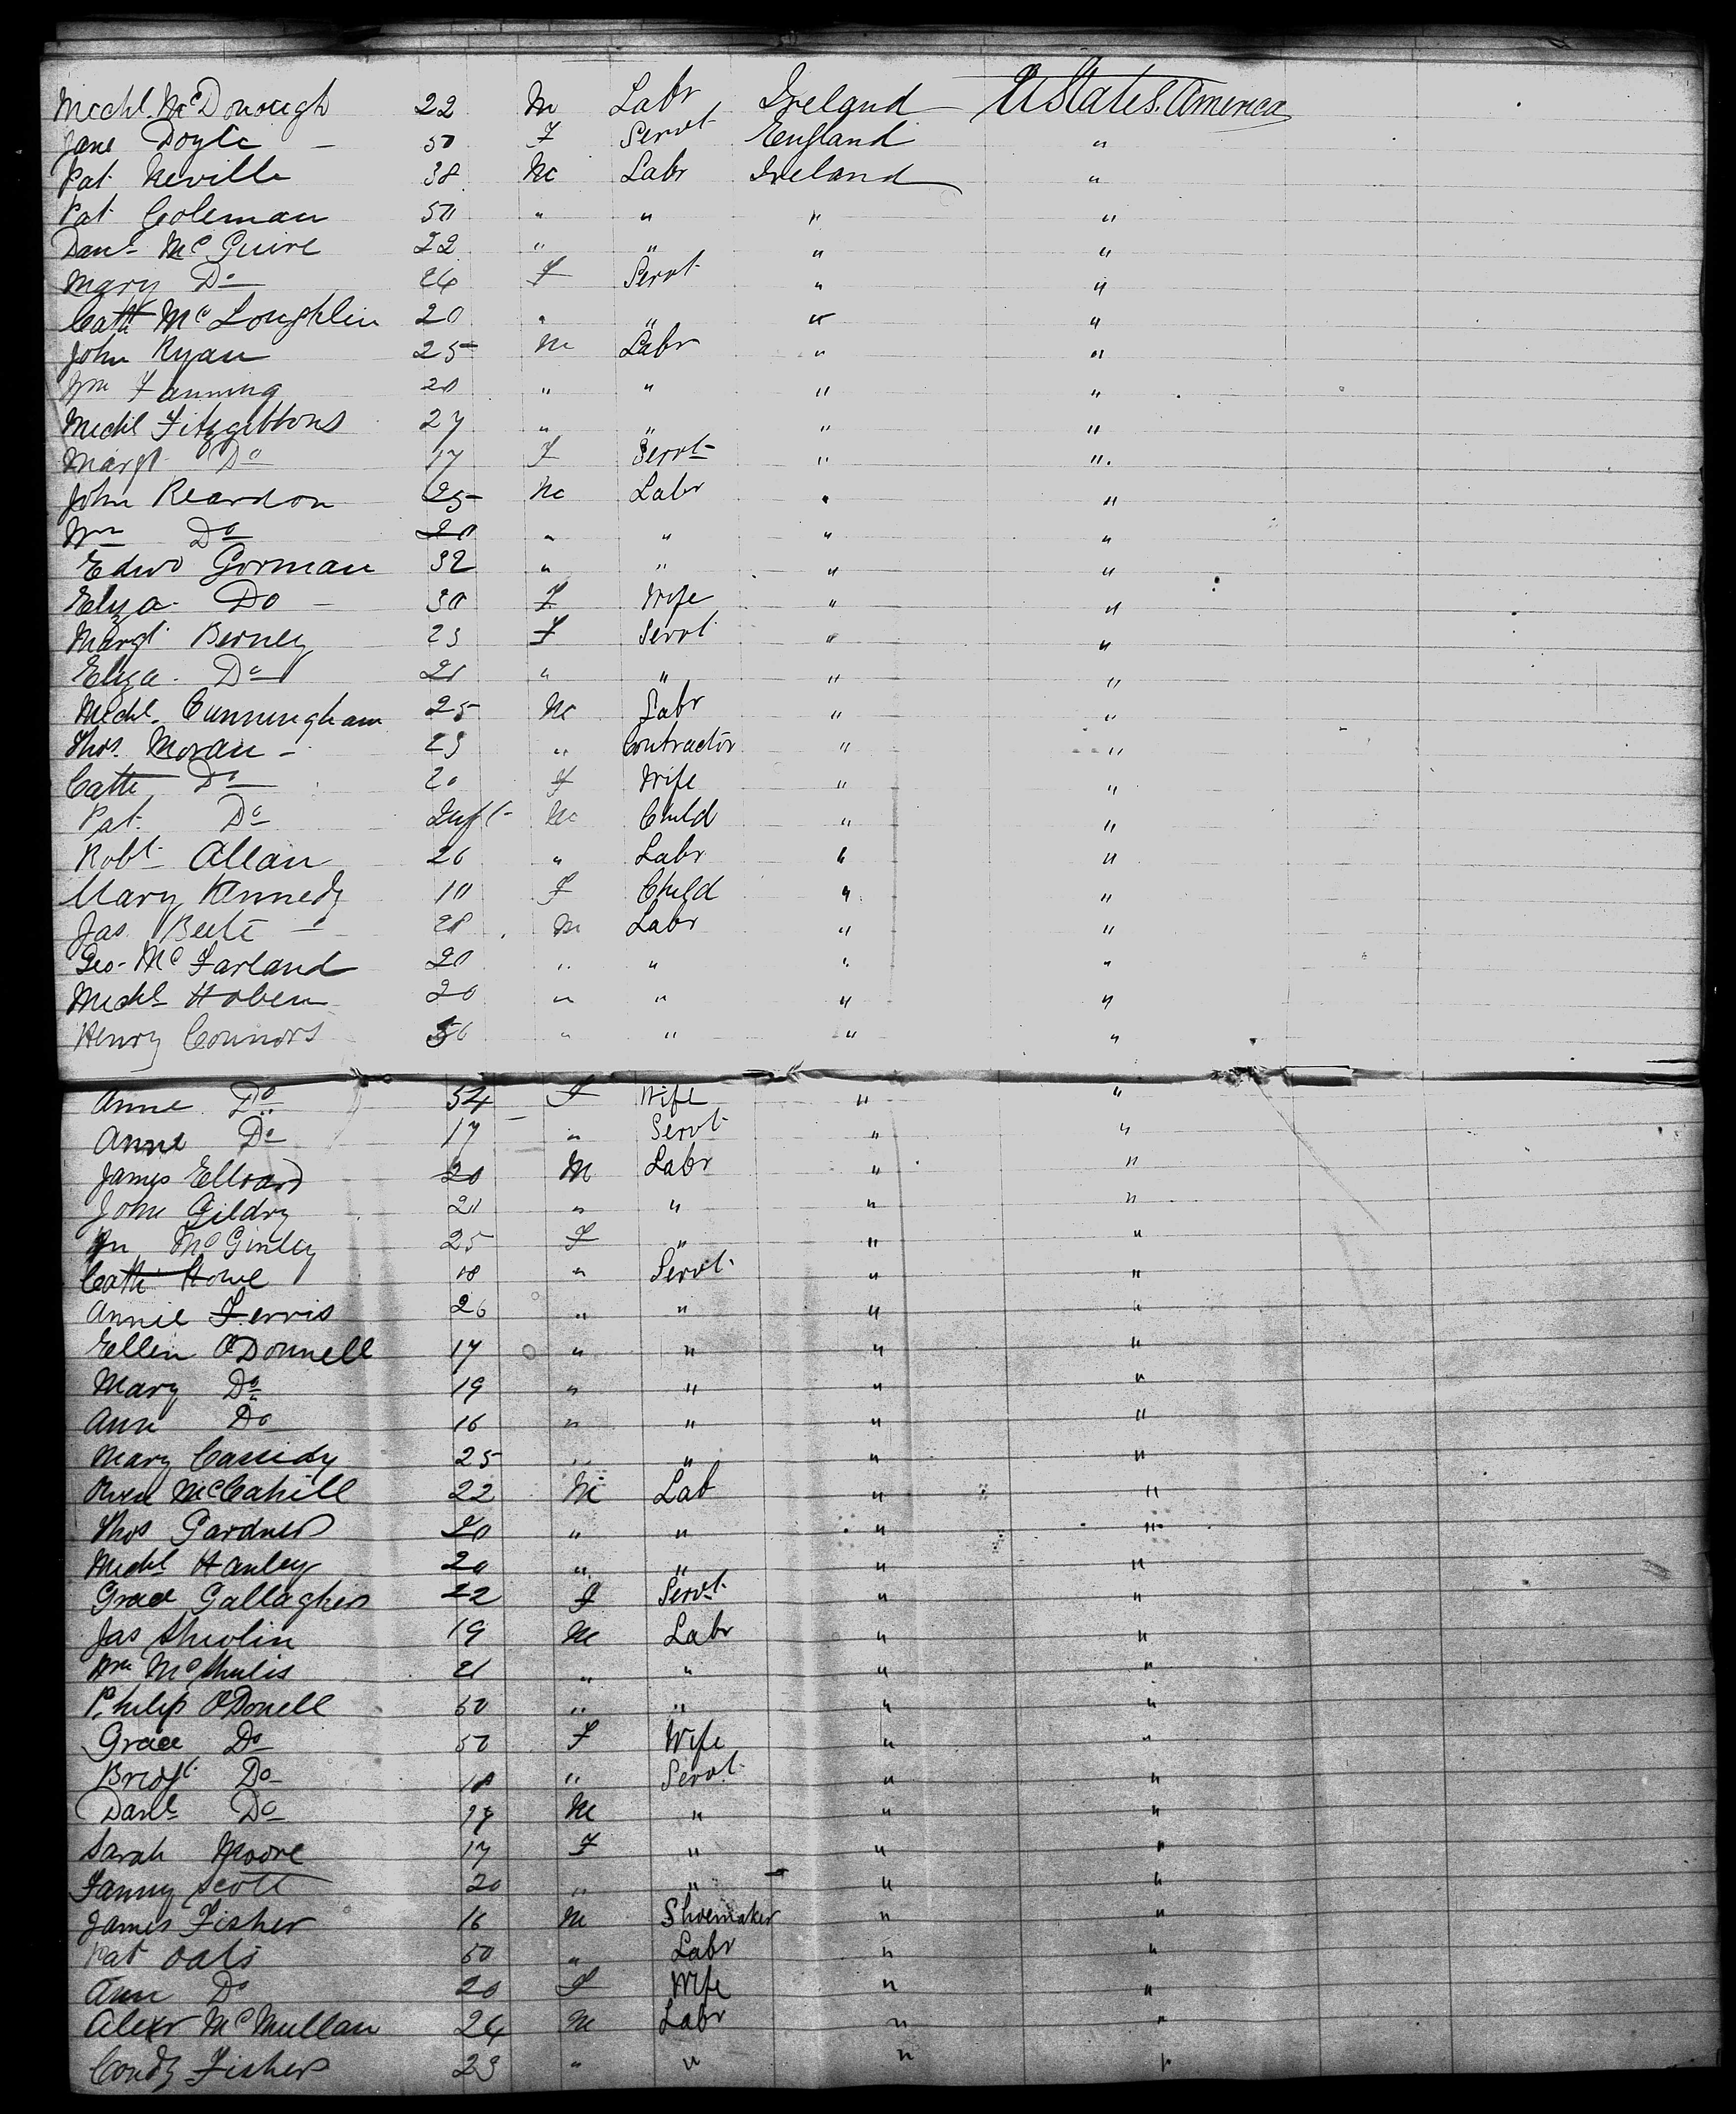 Michl. McDonough 22 M Labr Ireland U States America
Jane Doyle - 50 F Servt England "
Pat Neville 38 M Labr Ireland "
Pat Coleman 50 " " " "
Danl McGuire 22 " " " "
Mary Do 26 F Servt " "
Cath McLoughlin 20 " " " "
John Ryan 25 M Labr " "
Wm Fanning 20 " " " "
Michl Fitzgibbons 27 " " " "
Margt Do 17 F Servt " "
John Reardon 25 M Labr " "
Wm Do 20 " " " "
Edwd Gorman 32 " " " "
Eliza Do - 30 F Wife " "
Margt Berney 23 F Servt " "
Eliza Do 21 " " " "
Michl. Cunningham 25 M Labr " "
Thos. Moran - 23 " Contractor " "
Cath Do 20 F Wife " "
Pat. Do Inft M Child " "
Robt Allan 26 " Labr " "
Mary Kennedy 10 F Child " "
Jas. - 28 M Labr " "
Geo. McFarland 20 " " " "
Michl Hoben 20 " " " "
Henry Connors 56 " " " "
Anne Do 54 F Wife " "
Anne Do 17 " Servt " "
James Ellward 20 M Labr " "
John Gildry 21 " " " "
McGinley 25 F " " "
Cath Howe 18 " Servt. " "
Annie Ferris 26 " " " "
Ellen O'Donnell 17 " " " "
Mary Do 19 " " " "
Ann Do 16 " " " "
Mary Cassidy 25 " " " "
Owen McCahill 22 M Lab " "
Thos Gardner 20 " " " "
Michl Hanley 20 " " " "
Grace Gallagher 22 F Servt " "
Jas Shevlin 19 M Labr " "
Wm 21 " " " "
Philip O'Donell 50 " " " "
Grace Do 50 F Wife " "
Bridgt Do 18 " Servt. " "
Danl Do 17 M " " "
Sarah Moore 17 F " " "
Fanny Scott 20 " " " "
James Fisher 16 M Shoemaker " "
Pat Oats 50 " Labr " "
Ann Do 20 F Wife " "
Alexr McMullan 24 M Labr " "
Condy Fisher 23 " " " "